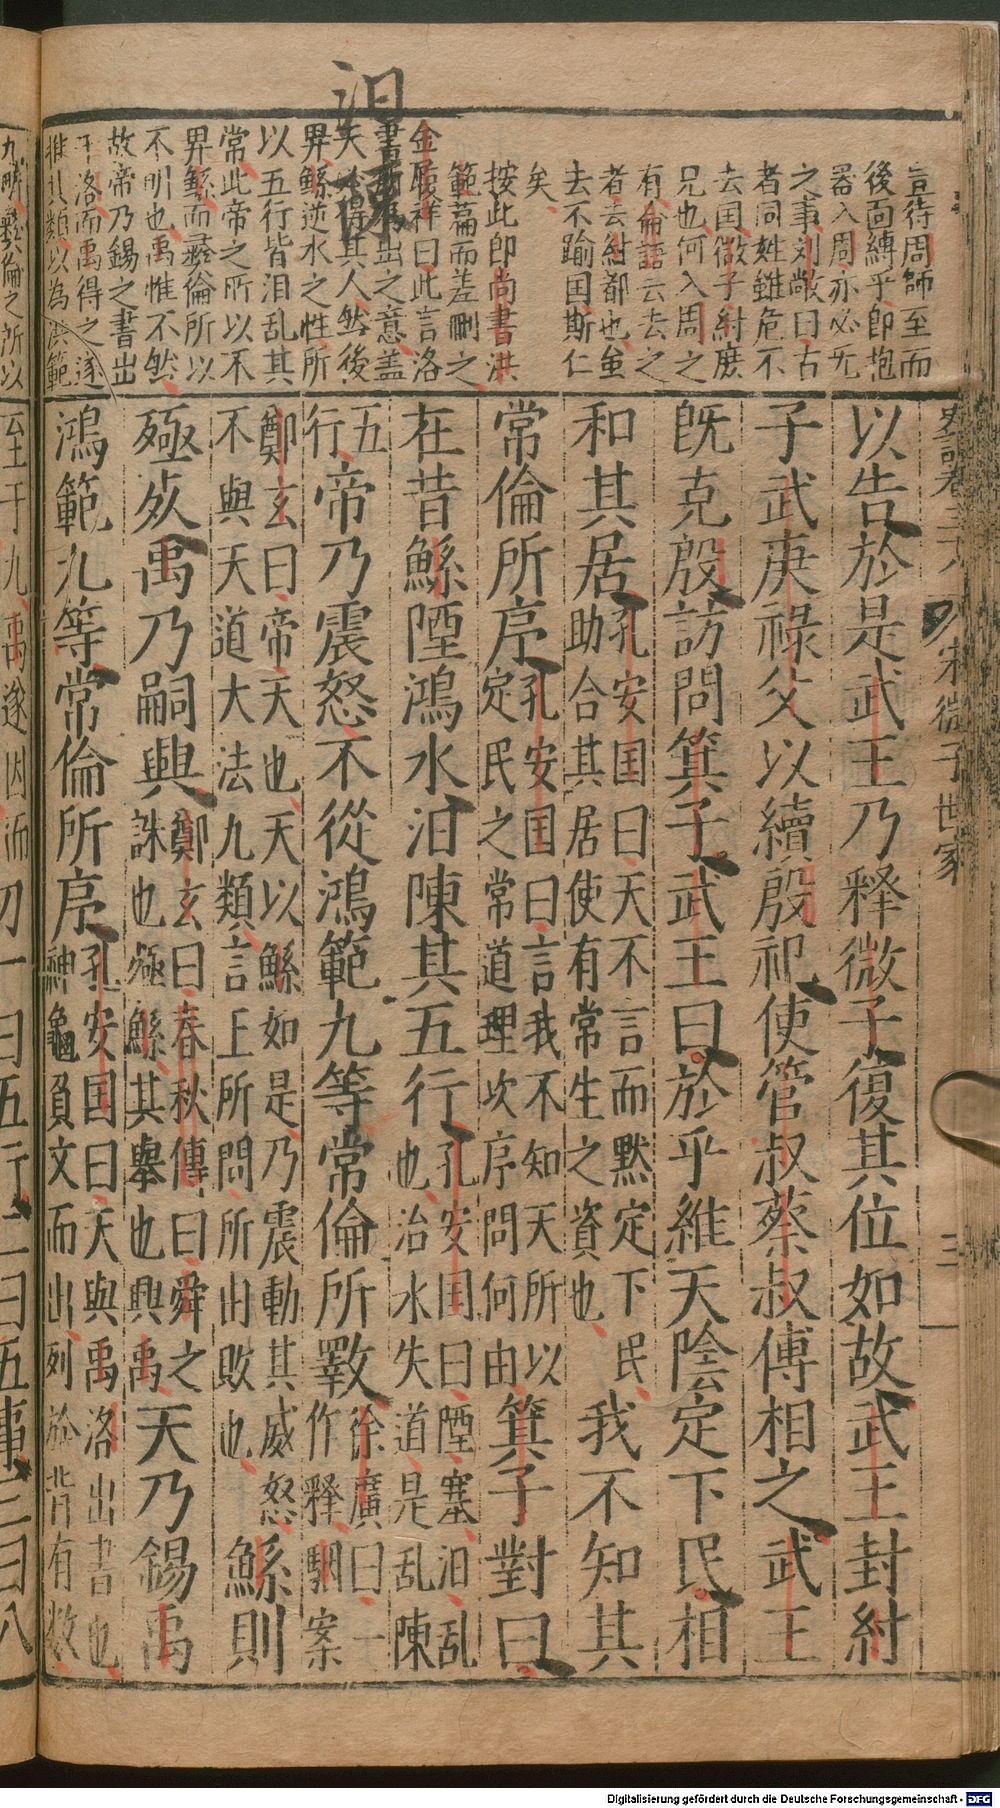 汩
言待周師至而
後面縛乎卽抱
器入周亦必无
之事刘敞曰古
者同姓雖危不
去国微子紂庶
兄也何入周之
有論語云去之
者云紂都也虽
去不踰国斯仁
矣
按此卽尚書洪
範篇而差刪之
金履祥曰此言洛
書所出之意盖
天必得其人然後
畀鯀逆水之性所
以五行皆汨乱其
常此帝之所以不
畀鯀而彝倫所以
不明也禹惟不然
故帝乃錫之書出
于洛而禹得之遂
推其類以為洪範
史記卷三十八 宋微子世家 三
以告於是武王乃释微子復其位如故武王封紂
子武庚祿父以續殷祀使管叔蔡叔傅相之武王
旣克殷訪問箕子武王曰於乎維天陰定下民相
和其居孔安国曰天不言而默定下民助合其居使有常生之資也我不知其
常倫所序孔安国曰言我不知天所以定民之常道理次序問何由箕子對曰
在昔鯀陻鴻水汩陳其五行孔安国曰陻塞汨乱也治水失道是乱陳
五行帝乃震怒不從鴻範九等常倫所斁徐廣曰一作釋駰案
鄭玄曰帝天也天以鯀如是乃震動其威怒不與天道大法九類言王所問所由敗也鯀則
殛死禹乃嗣興鄭玄曰春秋傳曰舜之誅也殛鯀其舉也興禹天乃錫禹
鴻範九等常倫所序孔安国曰天與禹洛出書也神龜負文而出列於背有数
九疇彝倫之所以
至于九禹遂因而
一曰五行二曰五事三曰八
Digitalisierung gefördert durch die Deutsche Forschungsgemeinschaft - DFG